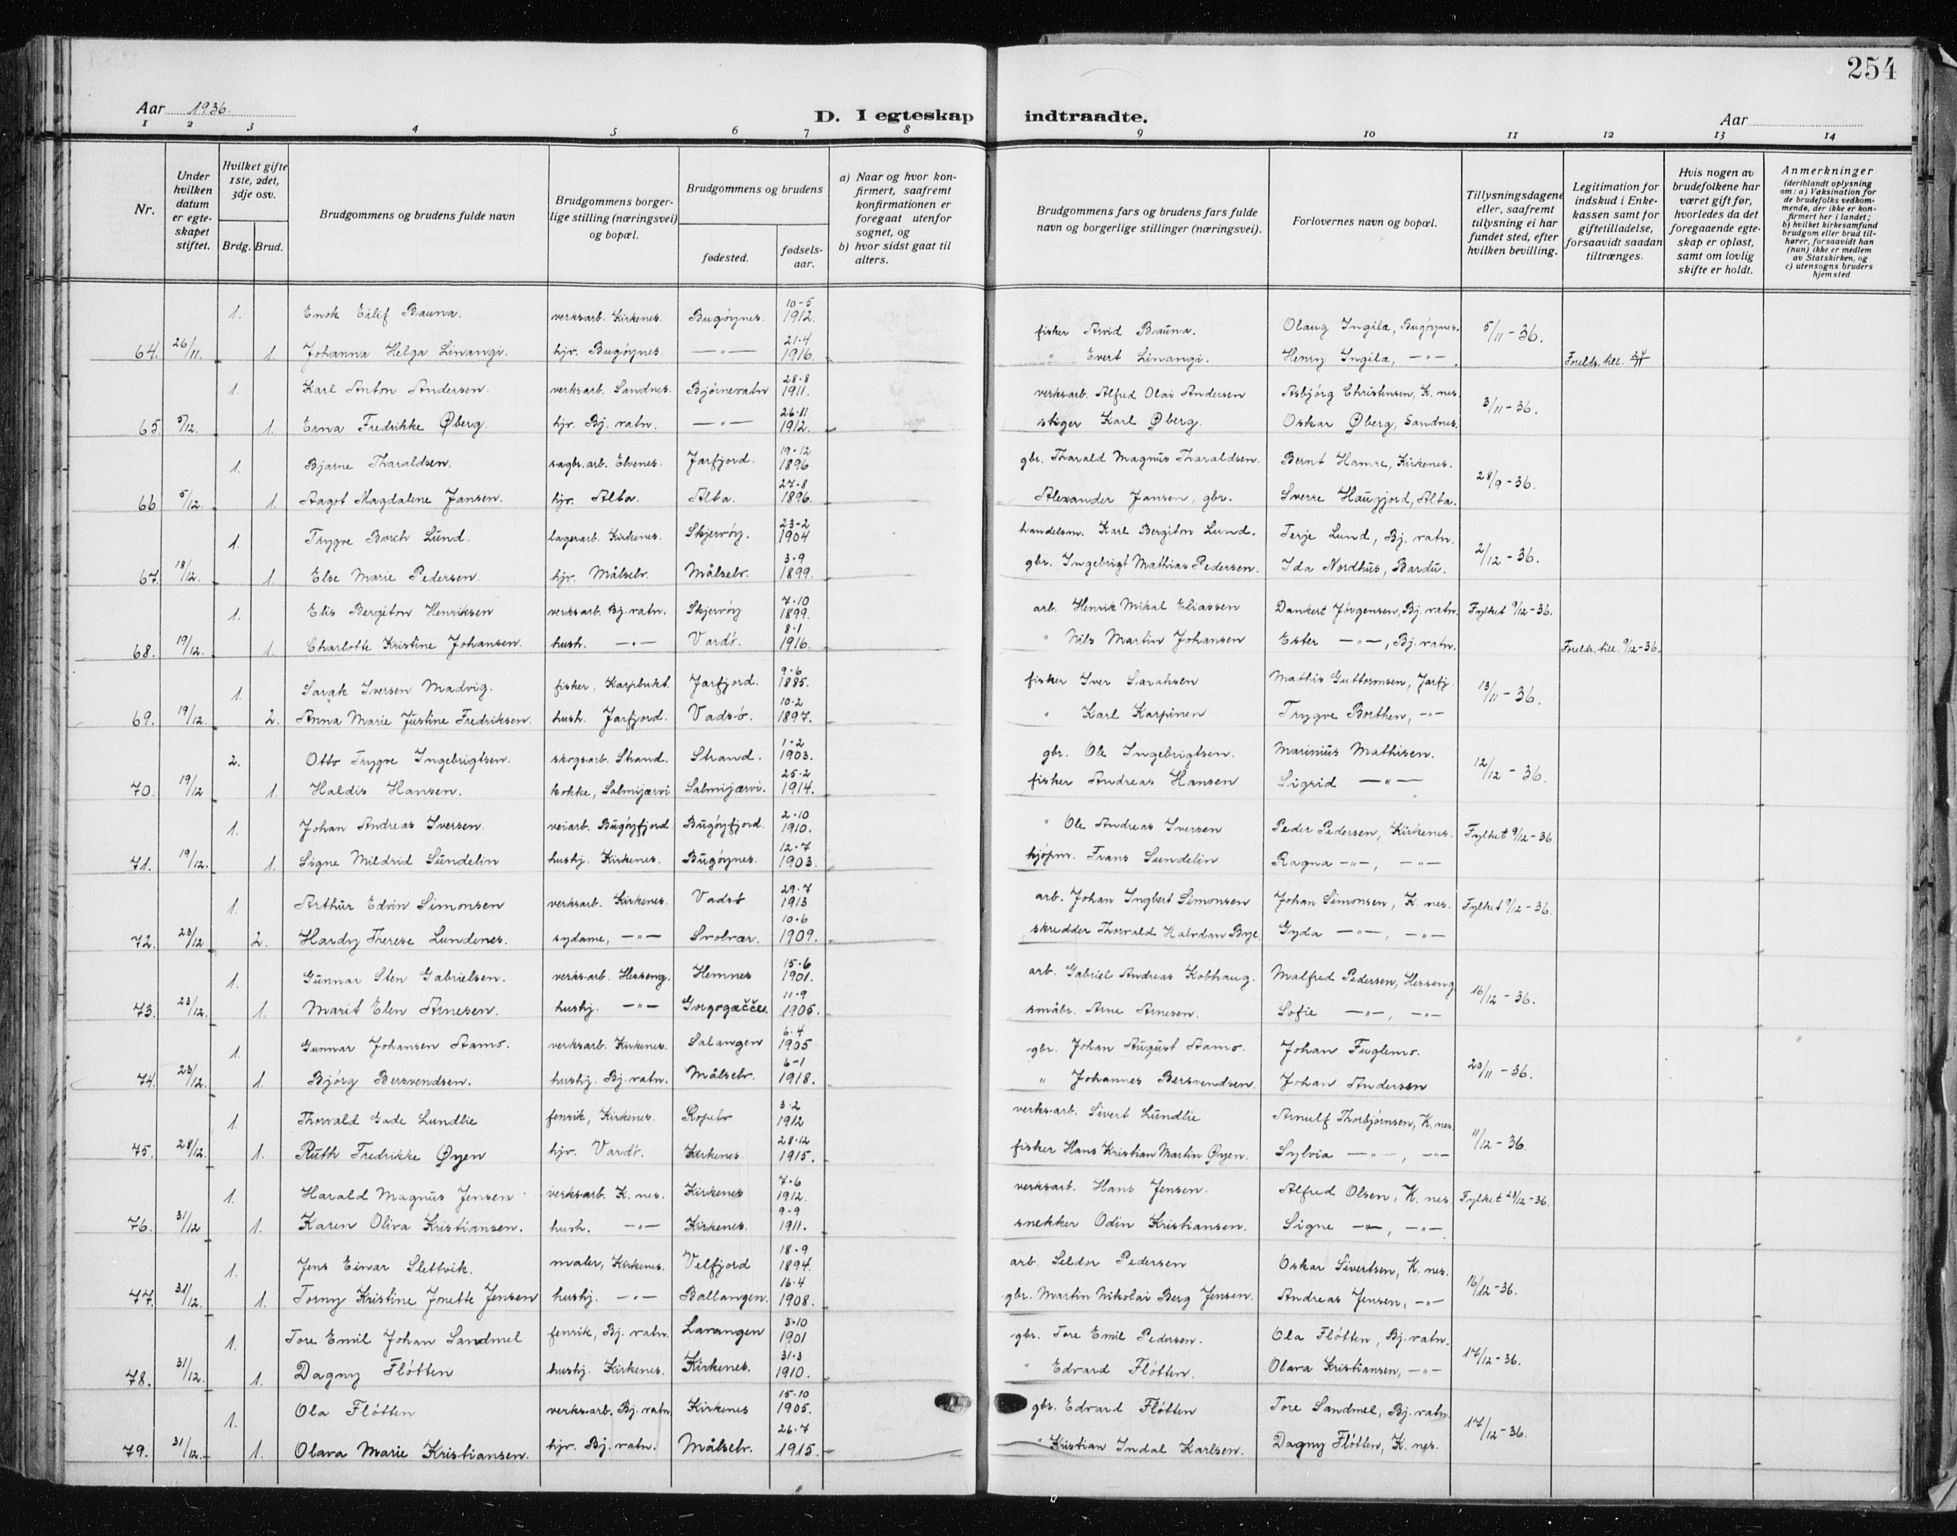 254
Aar 1936
D. I egteskap indtraadte.
Aar
1 2 3 4 5 6 7 8 9 10 11 12 13 14
Nr.
Under hvilken datum er egteskapet stiftet.
Hvilket gifte 1ste, 2det, 3dje osv.
Brdg. Brud.
Brudgommens og brudens fulde navn
Brudgommens borgerlige stilling (næringsvei) og bopæl.
Brudgommens og brudens
fødested.
fødselsaar.
a) Naar og hvor konfirmert, saafremt konfirmationen er foregaat utenfor sognet, og
b) hvor sidst gaat til alters.
Brudgommens fars og brudens fars fulde navn og borgerlige stillinger (næringsvei).
Forlovernes navn og bopæl.
Tillysningsdagene eller, saafremt tillysning ei har fundet sted, efter hvilken bevilling.
Legitimation for indskud i Enkekassen samt for giftetilladelse, forsaavidt saadan tiltrænges.
Hvis nogen av brudefolkene har været gift før, hvorledes da det foregaaende egteskap er opløst, samt om lovlig skifte er holdt.
Anmerkninger (deriblandt oplysning om: a) Vaksination for de brudefolks vedkommende, der ikke er konfirmert her i landet; b) hvilket kirkesamfund brudgom eller brud tilhører, forsaavidt han (hun) ikke er medlem av Statskirken, og c) utensogns bruders hjemsted
1. Enok Eilif Bauna. verksarb. Kirkenes. Bugøynes. 10-5 1912. fisker Arvid Bauna. Olaug Ingila, Bugøynes. 5/11-36.
64. 26/11. 1. Johanna Helga Linangi. hjv. Bugøynes —"— 21.4 1916. " Evert Linangi. Henry Ingila, —"— Forelds. till.
1. Karl Anton Andersen. verksarb. Sandnes. Bjørnevatn 28.8 1911. verksarb. Alfred Olai Andersen Asbjørg Christensen, K.nes. 3/11-36.
65. 5/12. 1. Erna Fredrikke Øberg. hjv. Bj.vatn. —"— 26.11 1912. stiger Karl Øberg. Oskar Øberg, Sandnes.
1. Bjarne Tharaldsen. sagbr.arb. Elvenes. Jarfjord. 19.12 1896 gbr. Tharald Magnus Tharaldsen. Bernt Hamre, Kirkenes. 28/9-36.
66 5/12. 1. Aagot Magdalene Jansen. hjv. Alta. Alta. 27.8 1896. Alexander Jansen, gbr. Sverre Haugfjord, Alta.
1. Trygve Borch Lund. lagerarb. Kirkenes. Skjervøy. 23-2 1904 handelsm. Karl Bergiton Lund. Terje Lund, Bj.vatn. 2/12-36.
67. 18/12. 1. Else Marie Pedersen. hjv. Målselv. Målselv. 3.9 1899. gbr. Ingebrigt Mathias Pedersen. Ida Nordhus, Bardu.
1. Elis Bergiton Henriksen verksarb. Bj.vatn. Skjervøy 7-10 1899. arb. Henrik Mikal Eliassen Dankert Jørgensen, Bj.vatn. Fylket 9/12-36.
68. 19/12. 1. Charlotte Kristine Johansen. hush. —"— Vardø. 8.1 1916. " Nils Martin Johansen Ester —"—, Bj.vatn. Forelds. till. 9/12-36.
1. Sarak Iversen Madvig. fisker, Karpbukt. Jarfjord. 9-6 1885. fisker Iver Saraksen Mathis Guttormsen, Jarfj. 13/11-36.
69. 19/12. 2. Anna Marie Justine Fredriksen. hush. Jarfjord. Vadsø. 10.2 1897. " Karl Karpinen Trygve Borthen, —"—
2. Otto Trygve Ingebrigtsen. skogsarb. Strand. Strand. 1.2 1903. gbr. Ole Ingebrigtsen. Marinius Mathisen. 12/12-36.
70. 19/12 1. Haldis Hansen. kokke, Salmijærvi Salmijærvi. 25.2 1914. fisker Andreas Hansen Sigrid —"—
1. Johan Andreas Iversen. veiarb. Bugøyfjord. Bugøyfjord. 2.10 1910. " Ole Andreas Iversen Peder Pedersen, Kirkenes. Fylket 9/12-36
71. 19/12. 1. Signe Mildrid Sundelin hushj. Kirkenes. Bugøynes. 12.7 1903. kjøpm. Frans Sundelin Ragna —"—, —"—
1. Arthur Edvin Simonsen verksarb. Kirkenes. Vadsø 29.7 1913 arb. Johan Ingbert Simonsen Johan Simonsen, K.nes. Fylket 9/12-36.
72. 23/12 2. Hardy Therese Lundenes. sydame, —"— Svolvær. 10.6 1909. skredder Thorvald Halvdan Bye. Gyda —"—, —"—
1. Gunnar Sten Gabrielsen. verksarb. Hesseng. Hemnes 15.6 1901. arb. Gabriel Andreas Kobhaug. Malfred Pedersen, Hesseng 16/12-36.
73. 23/12. 1. Marit Elen Arnesen. hushj. —"— 11.9 1905. småbr. Arne Arnesen. Sofie —"—, —"—
1. Gunnar Johansen Aamo. verksarb. Kirkenes. Salangen 6.4 1905 gbr. Johan August Aamo. Johan Fuglemo. 23/11-36.
74. 23/12. 1. Bjørg Bersvendsen. hushj. Bj.vatn. Målselv. 6-1 1918. " Johannes Bersvendsen. Johan Andersen
1. Thorvald Gade Lundlie fenrik, Kirkenes. 3.2 1912 verksarb. Sivert Lundlie Arnulf Thorbjørnsen, K.nes. 11/12-36.
75. 28/12. 1. Ruth Fredrikke Øyen hjv. Vardø. Kirkenes. 28.12 1915. fisker Hans Kristian Martin Øyen. Sylvia —"—, —"—
1. Harald Magnus Jensen verksarb. K.nes. Kirkenes 7.6 1912. verksarb. Hans Jensen. Alfred Olsen, K.nes. Fylket 23/12-36.
76. 31/12 1. Karen Oliva Kristiansen. hush. —"— Kirkenes. 9-9 1911. snekker Odin Kristiansen. Signe —"—, —"—
1. Jens Einar Slettvik. maler, Kirkenes. Velfjord 18.9 1894. arb. Seldor Pedersen Oskar Sivertsen, K.nes. 16/12-36.
77. 31/12. 1. Torny Kristine Jonette Jensen hushj. —"— Ballangen. 16.4 1908. gbr. Martin Nikolai Berg Jensen. Andreas Jensen, —"—
1. Tore Emil Johan Sandmel fenrik, Bj.vatn. Lavangen 3.10 1901 gbr. Tore Emil Pedersen. Ola Fløtten, Bj.vatn. 17/12-36.
78. 31/12. 1. Dagny Fløtten hushj. Kirkenes. Kirkenes. 31.3 1910. " Edvard Fløtten. Olava Kristiansen, —"—
1. Ola Fløtten verksarb. Bj.vatn Kirkenes 15.10 1905. gbr. Edvard Fløtten Tore Sandmel, Bj.vatn. 17/12-36.
79. 31/12. 1. Olava Marie Kristiansen. hjv. Bj.vatn. Målselv. 26.7 1915. " Kristian Indal Karlsen. Dagny Fløtten, K.nes.